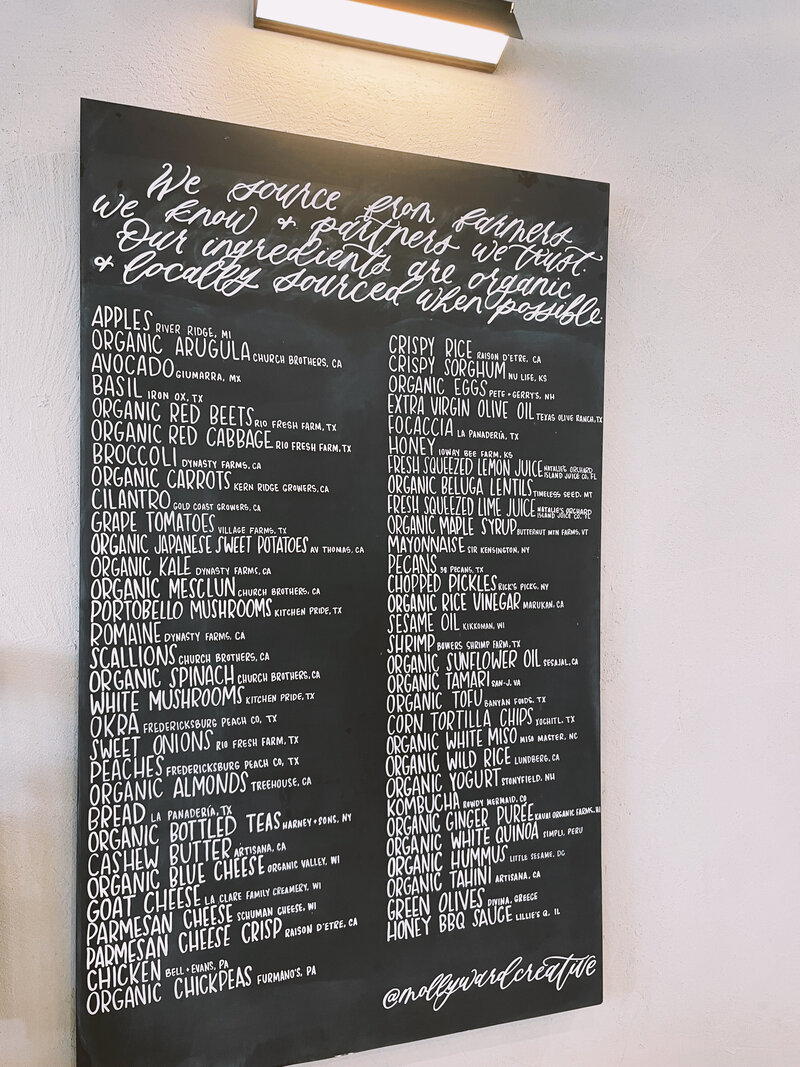 We source from farmers
we know + partners we trust.
Our ingredients are organic
+ locally sourced when possible.
APPLES RIVER RIDGE, MI
ORGANIC ARUGULA CHURCH BROTHERS, CA
AVOCADO GIUMARRA, MX
BASIL IRON OX, TX
ORGANIC RED BEETS RIO FRESH FARM, TX
ORGANIC RED CABBAGE RIO FRESH FARM, TX
BROCCOLI DYNASTY FARMS, CA
ORGANIC CARROTS KERN RIDGE GROWERS, CA
CILANTRO GOLD COAST GROWERS, CA
GRAPE TOMATOES VILLAGE FARMS, TX
ORGANIC JAPANESE SWEET POTATOES AV THOMAS, CA
ORGANIC KALE DYNASTY FARMS, CA
ORGANIC MESCLUN CHURCH BROTHERS, CA
PORTOBELLO MUSHROOMS KITCHEN PRIDE, TX
ROMAINE DYNASTY FARMS, CA
SCALLIONS CHURCH BROTHERS, CA
ORGANIC SPINACH CHURCH BROTHERS, CA
WHITE MUSHROOMS KITCHEN PRIDE, TX
OKRA FREDERICKSBURG PEACH CO, TX
SWEET ONIONS RIO FRESH FARM, TX
PEACHES FREDERICKSBURG PEACH CO, TX
ORGANIC ALMONDS TREEHOUSE, CA
BREAD LA PANADERÍA, TX
ORGANIC BOTTLED TEAS HARNEY + SONS, NY
CASHEW BUTTER ARTISANA, CA
ORGANIC BLUE CHEESE ORGANIC VALLEY, WI
GOAT CHEESE LA CLARE FAMILY CREAMERY, WI
PARMESAN CHEESE SCHUMAN CHEESE, WI
PARMESAN CHEESE CRISP RAISON D'ETRE, CA
CHICKEN BELL + EVANS, PA
ORGANIC CHICKPEAS FURMANO'S, PA
CRISPY RICE RAISON D'ETRE, CA
CRISPY SORGHUM NU LIFE, KS
ORGANIC EGGS PETE + GERRY'S, NH
EXTRA VIRGIN OLIVE OIL TEXAS OLIVE RANCH, TX
FOCACCIA LA PANADERÍA, TX
HONEY IOWAY BEE FARM, KS
FRESH SQUEEZED LEMON JUICE NATALIE'S ORCHARD
ISLAND JUICE CO, FL
ORGANIC BELUGA LENTILS TIMELESS SEED, MT
FRESH SQUEEZED LIME JUICE NATALIE'S ORCHARD
ISLAND JUICE CO, FL
ORGANIC MAPLE SYRUP BUTTERNUT MTN FARMS, VT
MAYONNAISE SIR KENSINGTON, NY
PECANS PECANS, TX
CHOPPED PICKLES RICK'S PICKS, NY
ORGANIC RICE VINEGAR MARUKAN, CA
SESAME OIL KIKKOMAN, WI
SHRIMP BOWERS SHRIMP FARM, TX
ORGANIC SUNFLOWER OIL SESAJAL, CA
ORGANIC TAMARI SAN-J, VA
ORGANIC TOFU BANYAN FOODS, TX
CORN TORTILLA CHIPS XOCHITL, TX
ORGANIC WHITE MISO MISO MASTER, NC
ORGANIC WILD RICE LUNDBERG, CA
ORGANIC YOGURT STONYFIELD, NH
KOMBUCHA ROWDY MERMAID, CO
ORGANIC GINGER PURÉE KAUAI ORGANIC FARMS, HI
ORGANIC WHITE QUINOA SIMPLI, PERU
ORGANIC HUMMUS LITTLE SESAME, DC
ORGANIC TAHINI ARTISANA, CA
GREEN OLIVES DIVINA, GREECE
HONEY BBQ SAUCE LILLIE'S Q, IL
@mollywardcreative